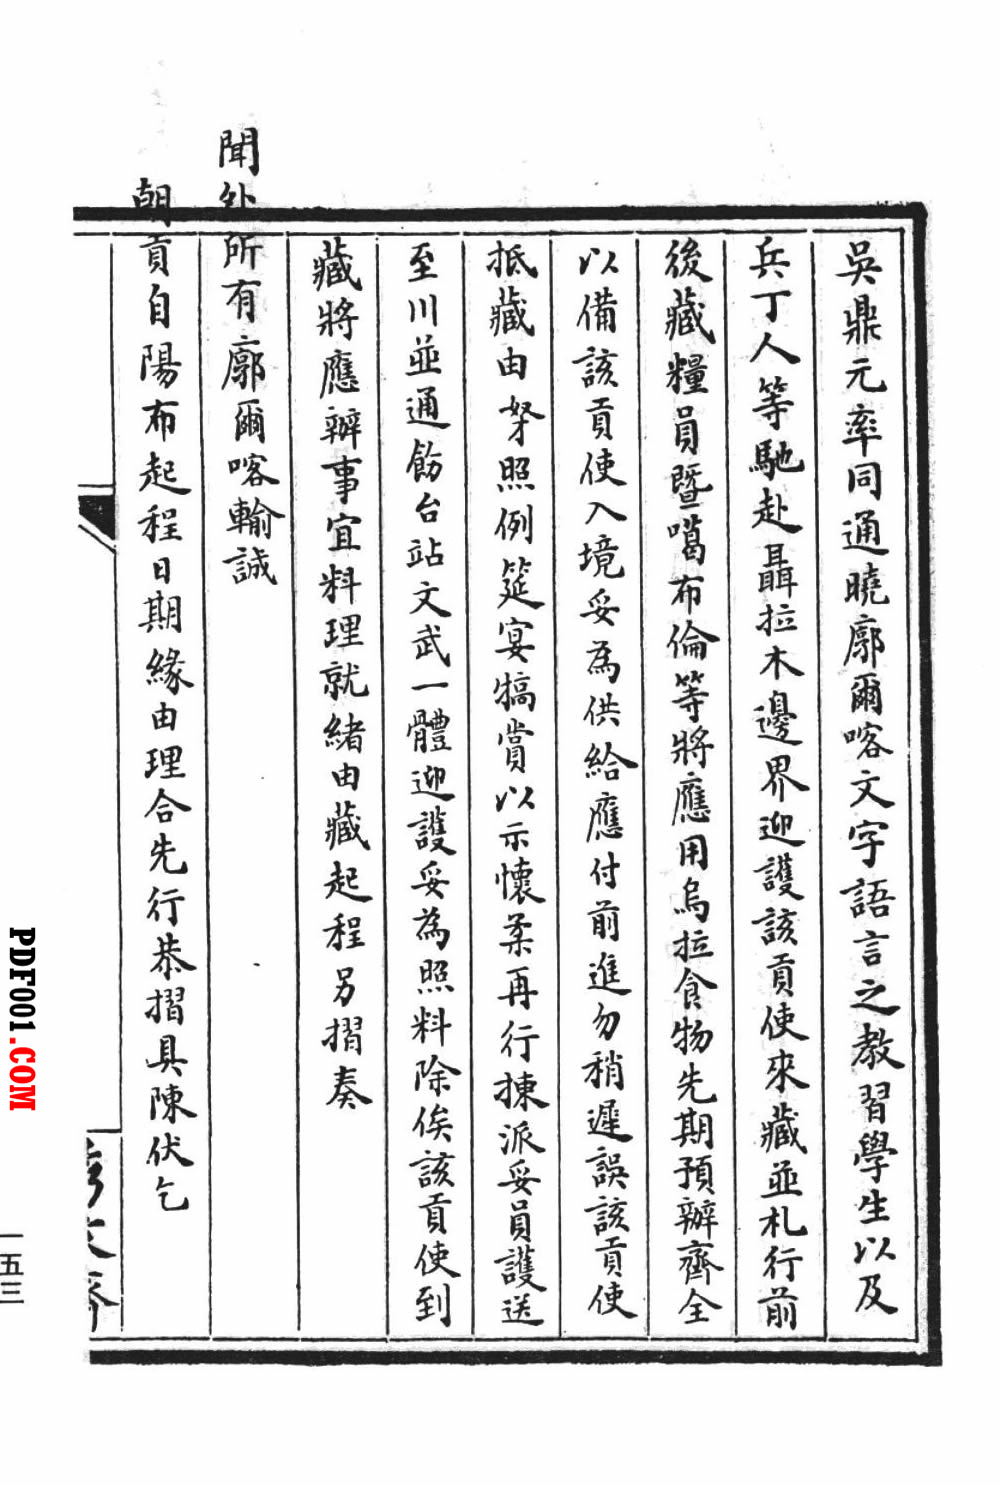 吳鼎元率同通曉廓爾喀文字語言之教習學生以及
兵丁人等馳赴聶拉木邊界迎護該貢使來藏並札行前
後藏糧員暨噶布倫等將應用烏拉食物先期預辦齊全
以備該貢使入境妥為供給應付前進勿稍遲誤該貢使
抵藏由孥照例筵宴犒賞以示懷柔再行揀派妥員護送
至川並通飭台站文武一體迎護妥為照料除俟該貢使到
藏將應辦事宜料理就緒由藏起程另摺奏
聞外所有廓爾喀輸誠
朝貢自陽布起程日期緣由理合先行恭摺具陳伏乞
文齋
一五三
PDF001.COM